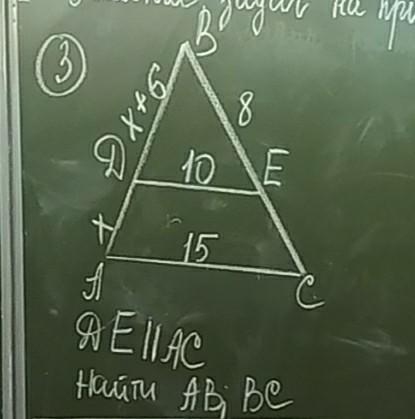 задач на
3
B
x+6
8
D
10
E
x
15
A
C
DE||AC
Найти AB; BC